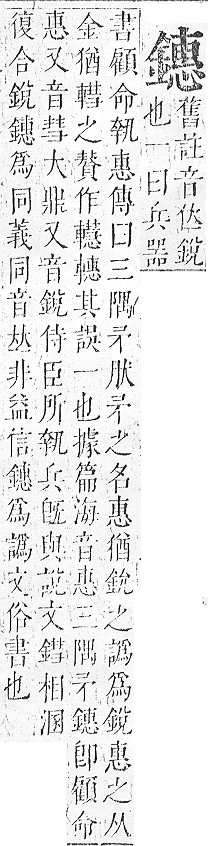 鏸
舊註音佚銳
也一曰兵器
書顧命執惠傳曰三隅矛肰矛之名惠猶銳之譌爲銳惠之从
金猶轊之贅作轗轊其誤一也據篇海音惠三隅矛鏸卽顧命
惠又音彗大鼎又音銳侍臣所執兵旣與說文鏏相溷
復合銳鏸爲同義同音𠀤非益信鏸爲譌文俗書也